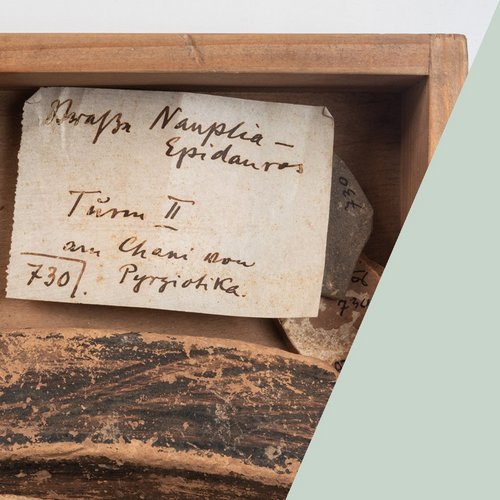 Straße Nauplia–
Epidauros
Turm II
am Chani von
Pyrgiotika.
730.
730
730